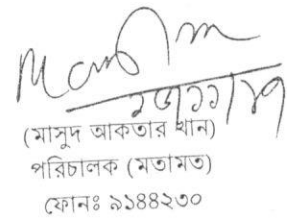 (মাসুদ আকতার খান)
পরিচালক (মতামত)
ফোনঃ ৯১৪৪২৩০